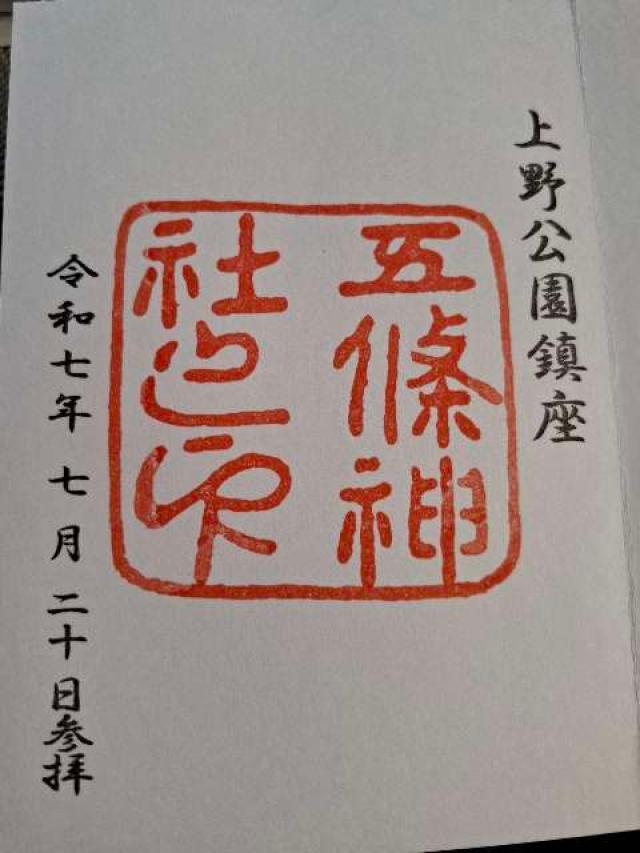 上野公園鎮座
五條神
社之印
令和七年七月二十日参拝